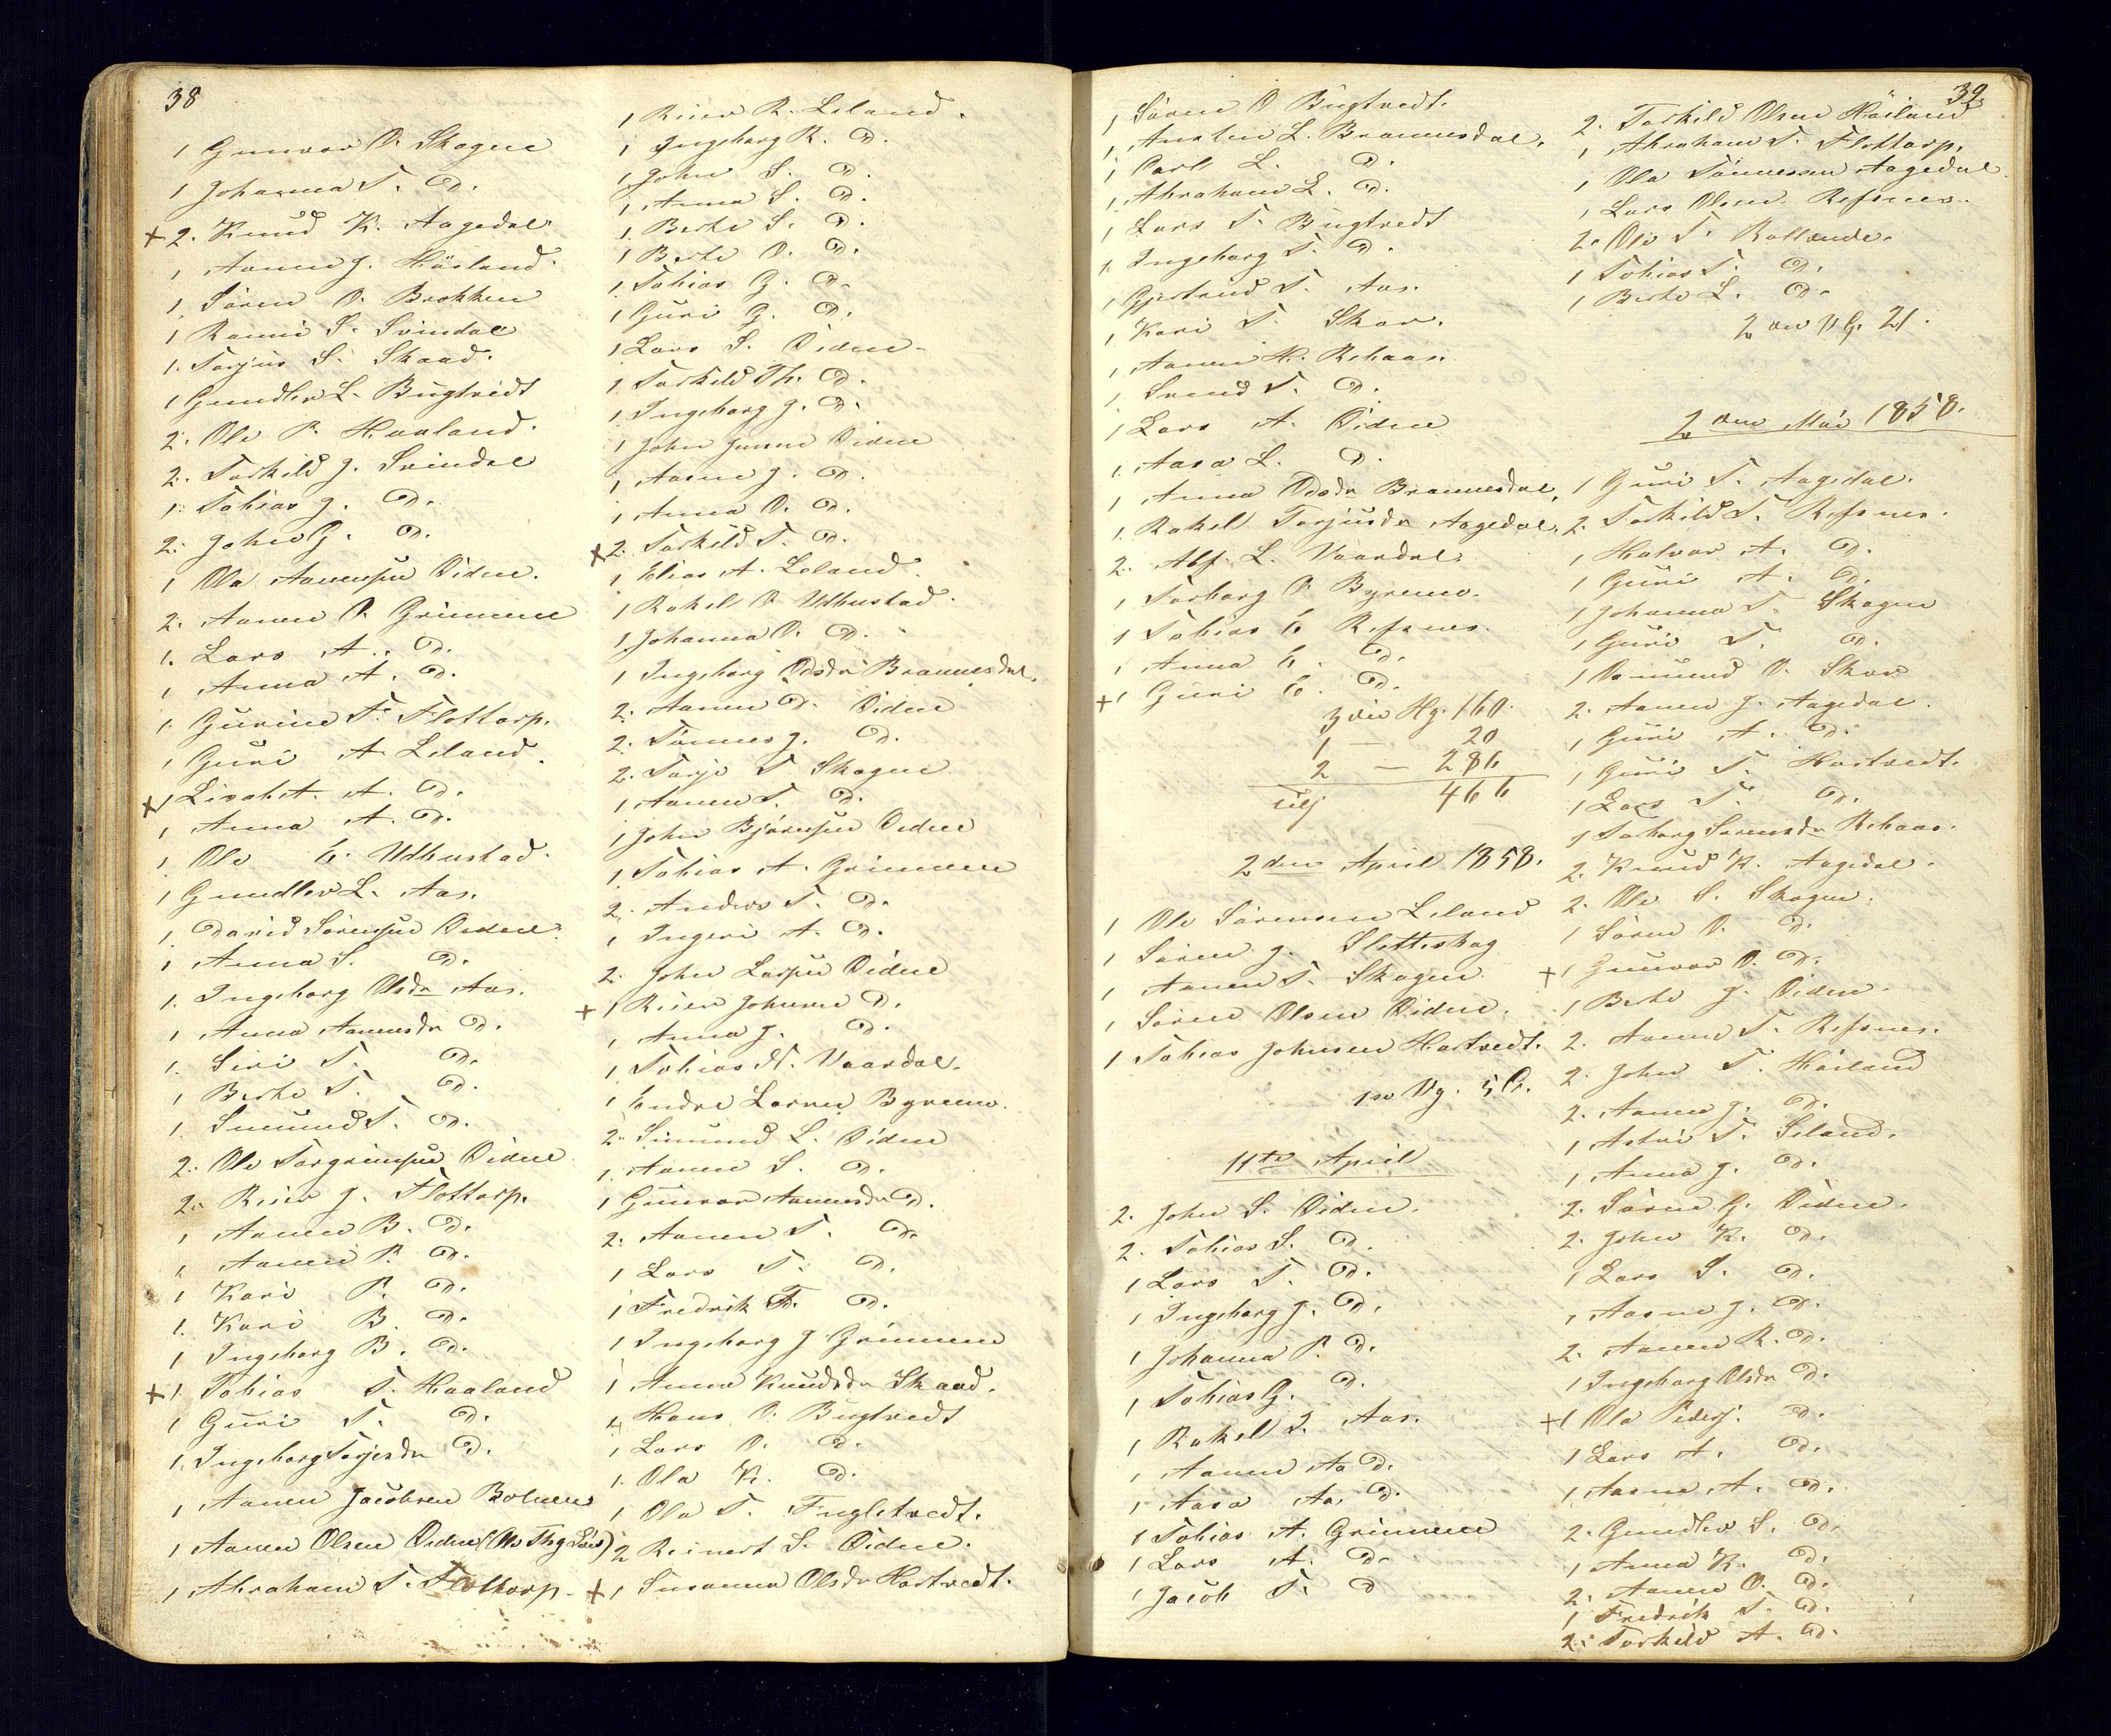 38
1 Gunvor O. Skagen
1 Johanna T. D.
+ 2. Knud K. Aagedal
1 Aanen J. Häaland.
1. Sören O. Brokken
1 Ranni S. Svindal
1. Torjus S. Skaad.
1 Gundler L. Bugtvedt
2. Ole P. Haaland.
2. Torkild J. Svindal
1. Tobias J. D.
2. John G. D.
1 Ole Aanensen Öidne.
2. Aanen O. Grimmene
1. Lars A. D.
1 Anna A. D.
1. Gurine T. Flottorp.
1 Guri A Leland.
+ 1 Lisabet A. D.
1 Anna A. D.
1. Ole E. Udhustad.
1 Gundler L. Aas.
1. David Sörensen Öidne.
1 Anna S. D.
1. Ingeborg Olsdr Aas.
1 Anna Aanensdr D.
1. Siri T. D.
1 Berte T. D.
1. Smund T. D.
2. Ole Torgrimsen Öidne
2. Reier J. Flottorp.
1 Aanen B. D.
1. Aanen P. D.
1 Kari P. D.
1. Kari B. D.
1 Ingeborg B. D.
+ 1. Tobias T. Haaland
1 Guri T. D.
1. Ingeborg Torjesdr D.
1 Aanen Jacobsen Bolmen
1 Aanen Olsen Öidne (
1 Abraham T. Flottorp.
1 Reier R. Leland.
1 Ingeborg R. D.
1 John S. D.
1. Anna S. D.
1. Berte S. D.
1 Berte O. D.
1. Tobias G. D.
1 Guri G. D.
1 Lars S. Öidne
1. Torkild Th. D.
1 Ingeborg J. D.
1 John Jensen Öidne
1 Aasne J. D.
1 Anna O. D.
+ 2. Torkild T. D.
1 Elias A. Leland.
1 Rakel O Udhustad.
1. Johanna O. D.
1 Ingeborg Odsdr Brannesdal.
2. Aanen D. Öidne
2. Tönnes J. D.
2. Torje T Skagen
1 Aanen T. D.
1 John Björnsen Öidne
1. Tobias A. Grimmene
2. Anders T. D.
1 Ingeri A. D.
2. John Larsen Öidne
+ 1 Reier Johnsen D.
1 Anna J. D.
1 Tobias N. Vaardal.
1 Endre Larsen Byremo.
2. Simund L. Öidne
1. Aanen S. D.
1 Gunvor Aanensdr D.
2. Aanen T. D.
1 Lars T. D.
1 Fredrik T. D.
1 Ingeborg J Grimmene
1 Anna Knudsdr Skaad.
1 Hans O. Bugtvedt
1 Lars O. D.
1. Ola K. D.
1 Ola T. Fugletvedt.
2 Reinert S. Öidne.
+ 1 Susanna Olsdr Hortvedt.
39
1 Sören O Bugtvedt.
1 Austen L. Brannesdal.
1 Carl L. D.
1 Abraham L. D.
1 Lars T. Bugtvedt
1. Ingeborg T. D.
1 Gjertrud T. Aas.
1 Kari T. Skar.
1 Aanen H. Rehaas.
1 Svend T. D.
1 Lars A. Öidne
1. Aasa L. D.
1 Anna Odsdr Brannesdal.
1. Rakel Torjusdr Aagedal.
2. Alf. L. Vaardal.
1 Torborg O. Byremo.
1 Tobias E Refsnes.
1 Anna E. D.
+ 1 Guri E. D.
3die Hg. 160.
1 — 20
2 — 286
466
2den April 1858.
1 Ole Sörensen Leland
1 Sören J. Slotteskag
1 Aanen T. Skagen
1 Sören Olsen Öidne.
1 Tobias Johnsen Hortvedt.
11te April
2. John S. Öidne.
2. Tobias S. D.
1 Lars T. D.
1 Ingeborg J. D.
1 Johanna P. D.
1 Tobias G. D.
1 Rakel I. Aas.
1 Aanen Aa D.
1 Aasa Aa, D.
1 Tobias A. Grimmene
1 Lars A. D.
1 Jacob T. D
2. Torkild Olsen Höiland
1 Abraham T. Flottorp.
1 Ola Tönnessen Aagedal.
1 Lars Olsen Refsnes.
2. Ole T. Rollende.
1 Tobias T. D.
1 Berte L. D.
2den Mai 1858.
1 Guri T. Aagedal.
2. Torkild T. Refsnes.
1 Halvor A. D.
1 Guri A. D.
1 Johanna T. Skagen
1 Guri T. D.
1 Omund O. Skar
2. Aanen J. Aagedal.
1 Guri A. D.
1 Guri T. Hortvedt.
1 Lars T. D.
1 Torborg Sörensdr Rehaas.
2. Knud K. Aagedal.
2. Ole S. Skagen.
1 Sören O. D.
+ 1 Gunvor O. D.
1 Berte J. Öidne.
2. Aanen T. Refsnes.
2. John T. Höiland
2. Aanen J. D.
1 Astri T. Leland.
1 Anna J. D.
2. Sören G. Öidne.
2. John K. D.
1 Lars S. D.
1 Aasne J. D.
2. Aanen R. D.
1 Ingeborg Olsdr D.
+ 1 Ole Pedersj. D.
1 Lars A. D.
1 Aasne A. D.
2. Gundler S. D.
1 Anna K. D.
2. Aanen O. D.
1 Fredrik T. D.
2. Torkild A. D.